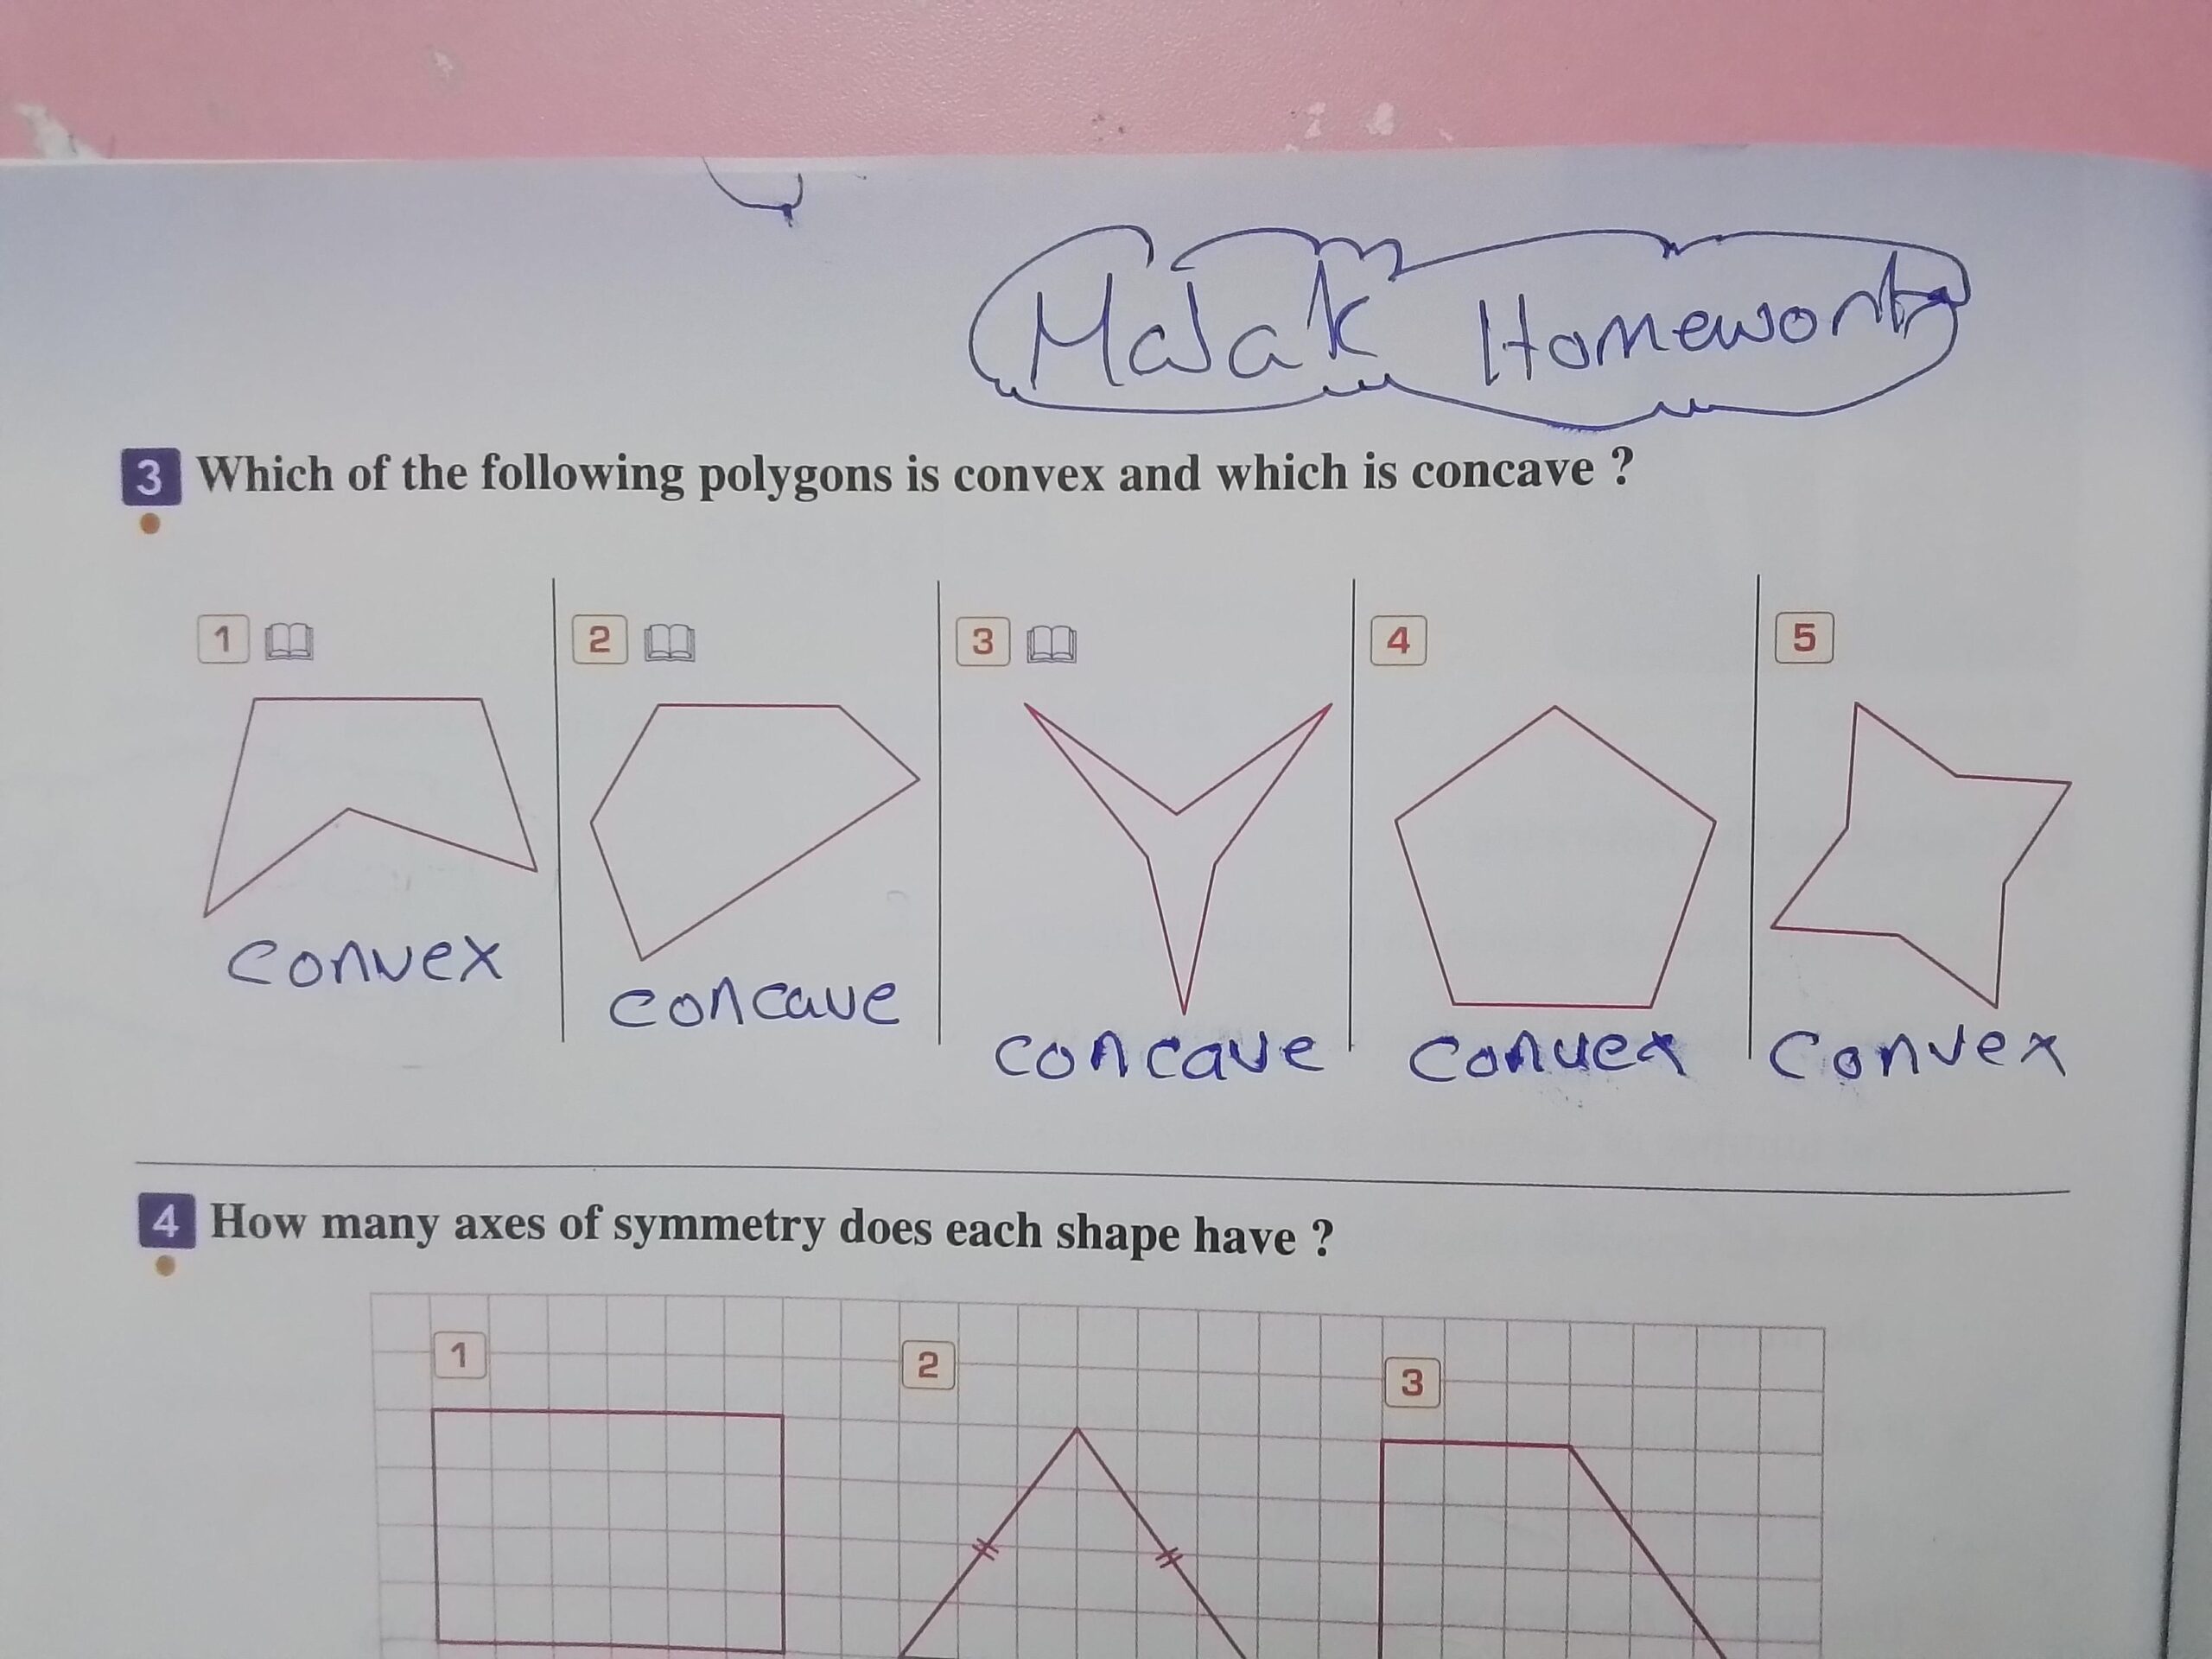 Malak Homework
3 Which of the following polygons is convex and which is concave ?
1 2 3 4 5
convex concave concave convex convex
4 How many axes of symmetry does each shape have ?
1 2 3